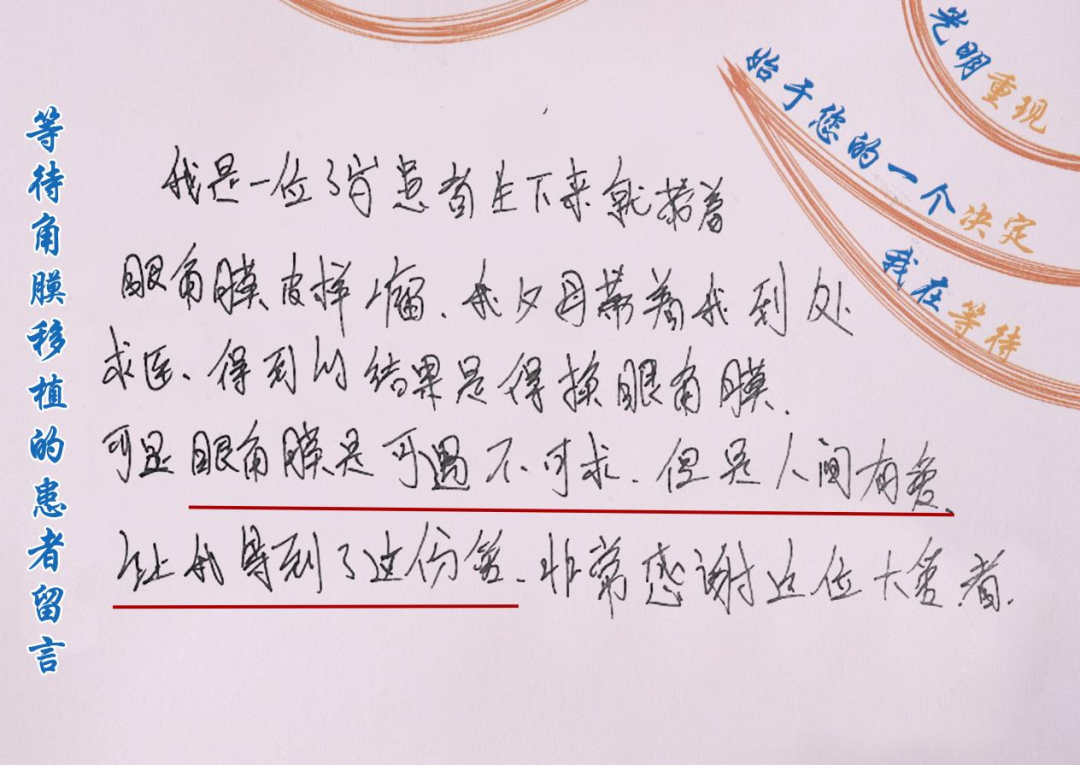 等待角膜移植的患者留言
光明重现
始于您的一个决定
我在等待
我是一位 患者生下来就带着
眼角膜皮样瘤、我父母带着我到处
求医、得到的结果是得换眼角膜、
可是眼角膜是可遇不可求、但是人间有爱、
让我等到了这份爱、非常感谢这位大爱者、